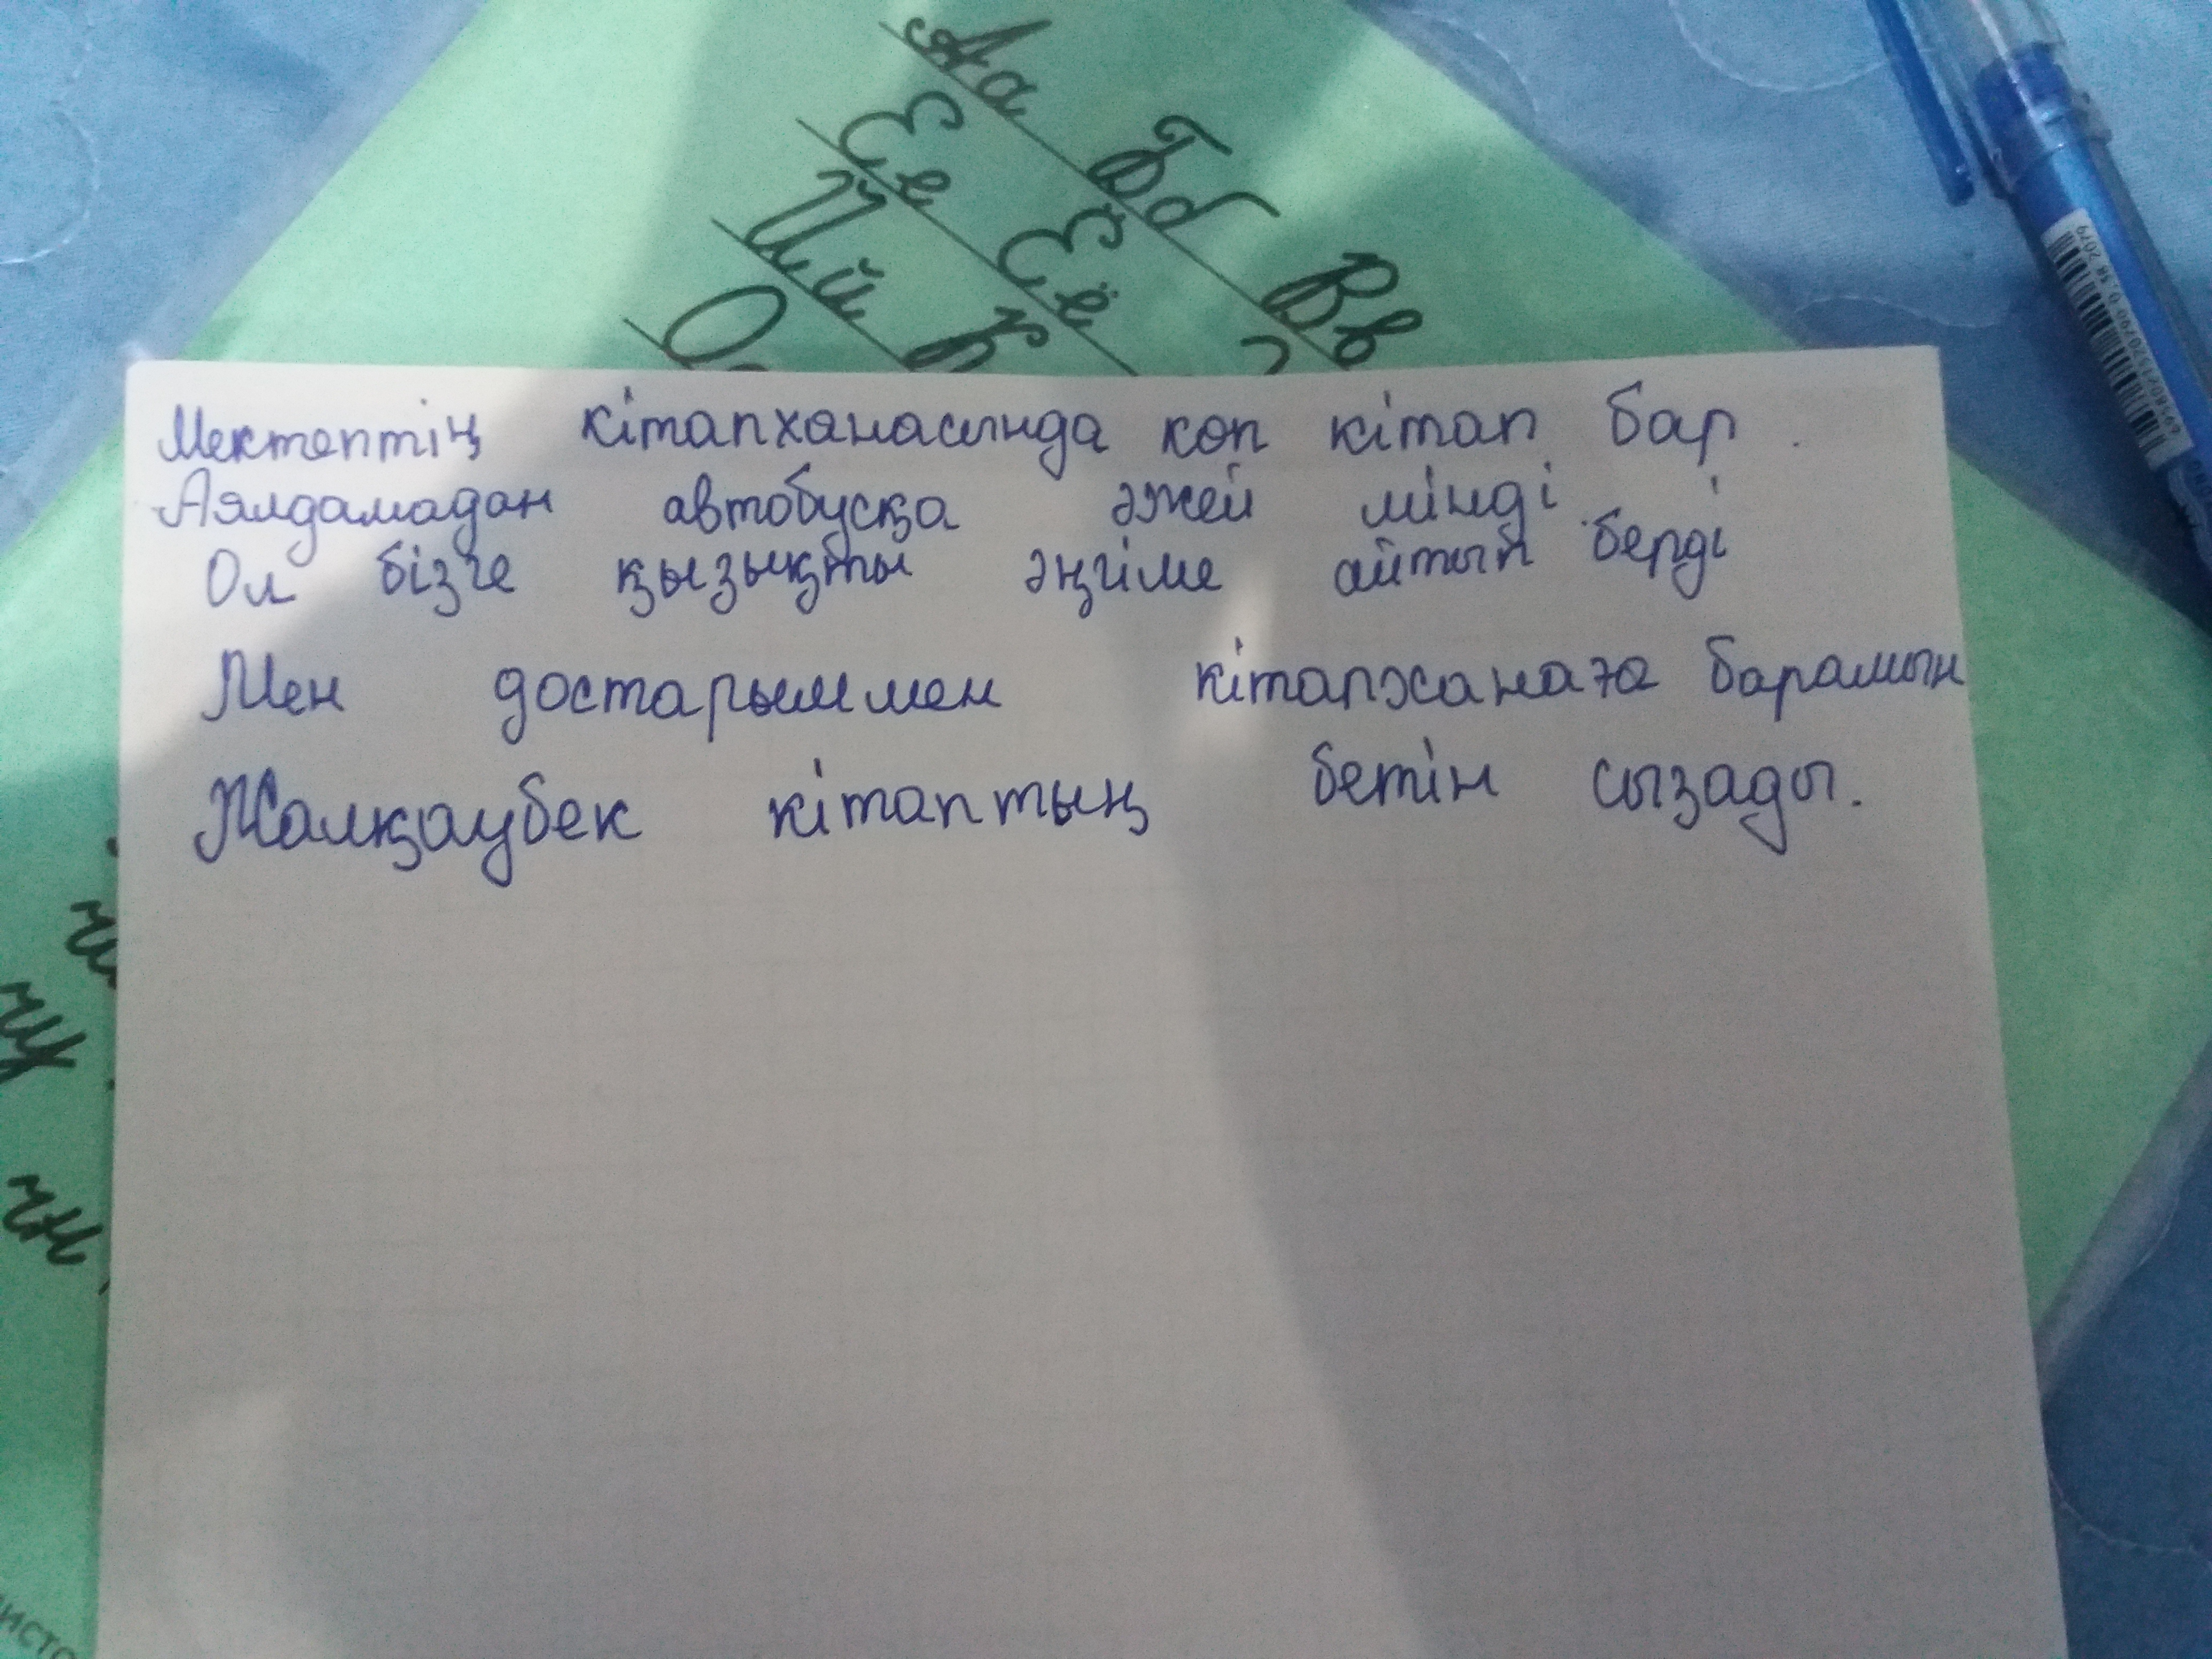 Аа Бб Вв
Ее Ёё
Йй К
Мектептің кітапханасында көп кітап бар.
Аялдамадан автобусқа әжей мінді.
Ол бізге қызықты әңгіме айтып берді
Мен достарыммен кітапханаға барамын
Жалқаубек кітаптың бетін сызады.
чн